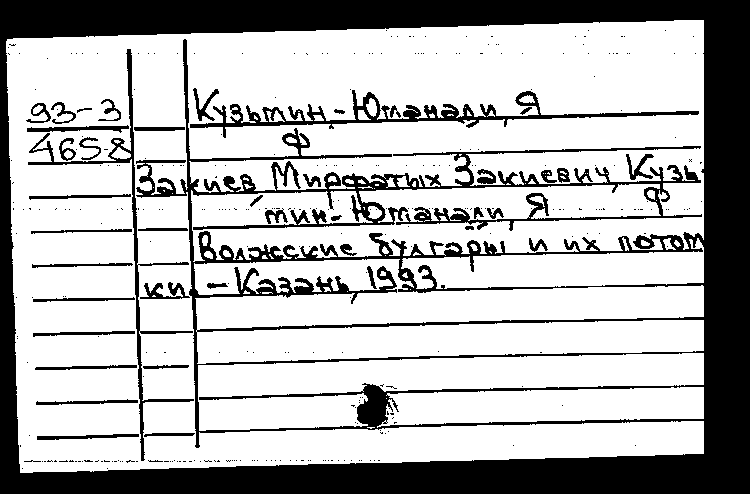 93-3 Кузьмин-Ютанали, Я
4658 Ф
Закиев, Мирфатых Закиевич, Кузь-
мин-Ютанали, Я Ф
Волжские булгары и их потом
ки. - Казань, 1993.